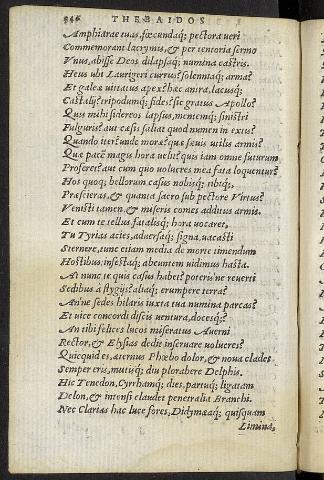 THEBAIDOS
Amphiaræ tuas, fœcundaq; pectora veri
Commemorant lacrymis, & per tentoria sermo
Vnus, abisse Deos dilapsaq; numina castris.
Heu ubi Laurigeri currus? solenniaq; arma?
Et galeæ uittatus apex? hæc antra, lacusq;
Castalij, tripodumq; fides? sic gratus Apollo?
Quis mihi sidereos lapsus, mentemq; sinistri
Fulguris? aut cæsis saliat quod numen in extis?
Quando iter? unde moræ? quæ sæuis utilis armis?
Quæ pacẽ magis hora uelit? quis iam omne futurum
Proferet? aut cum quo uolucres mea fata loquentur?
Hos quoq; bellorum casus nobisq; tibiq;
Præscieras, & quanta sacro sub pectore Virtus?
Venisti tamen, & miseris comes additus armis.
Et cum te tellus fatalisq; hora uocaret,
Tu Tyrias acies, aduersaq; signa, uacasti
Sternere, tunc etiam media de morte timendum
Hostibus, infestaq; abeuntem uidimus hasta.
At nunc te quis casus habet? poterisne reuerti
Sedibus à stygijs? altaq; erumpere terra?
Anne sedes hilaris iuxta tua numina parcas?
Et uice concordi discis uentura, docesq;?
An tibi felices lucos miseratus Auerni
Rector, & Elysias dedit inseruare uolucres?
Quicquid es, æternus Phœbo dolor, & noua clades
Semper eris, mutisq; diu plorabere Delphis.
Hic Tenedon, Cyrrhamq; dies, partuq; ligatam
Delon, & intonsi claudet penetralia Branchi.
Nec Clarias hac luce fores, Didymæaq; quisquam
Limina,